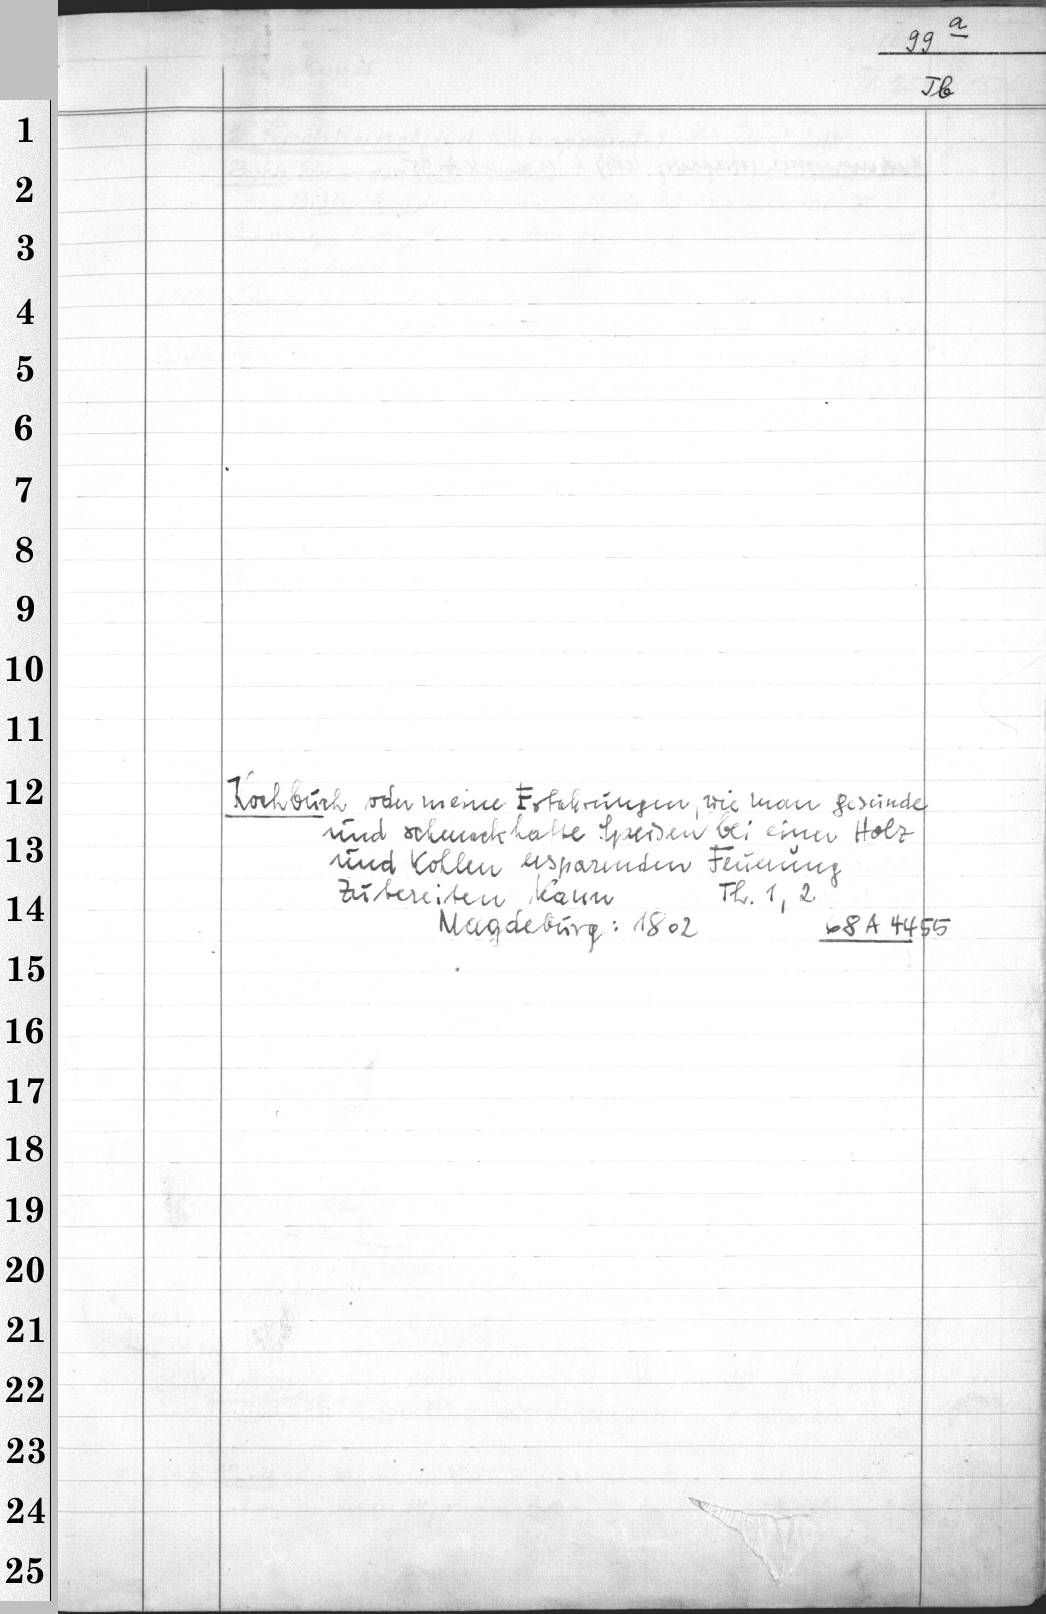 99 a
Jb
1
2
3
4
5
6
7
8
9
10
11
12
13
14
15
16
17
18
19
20
21
22
23
24
25
Kochbuch oder meine Erfahrungen, wie man gesunde
und schmackhafte Speisen bei einer Holz
und Kohlen ersparenden Feuerung
zubereiten kann Th. 1, 2
Magdeburg: 1802 68 A 4455